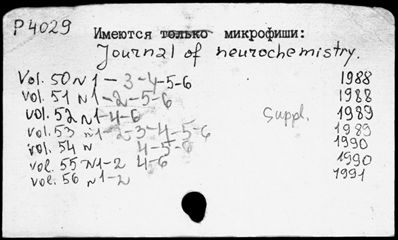 P4029
Имеются только микрофиши:
Journal of neurochemistry.
Vol. 50 N 1 - 3-4-5-6 1988
vol. 51 N 1-2-5-6 1988
vol. 52 N 1-4-6 Suppl. 1989
vol. 53 N 1-2-3-4-5-6 1989
vol. 54 N 4-5-6 1990
vol. 55 N 1-2 4-6 1990
vol. 56 N 1-2 1991